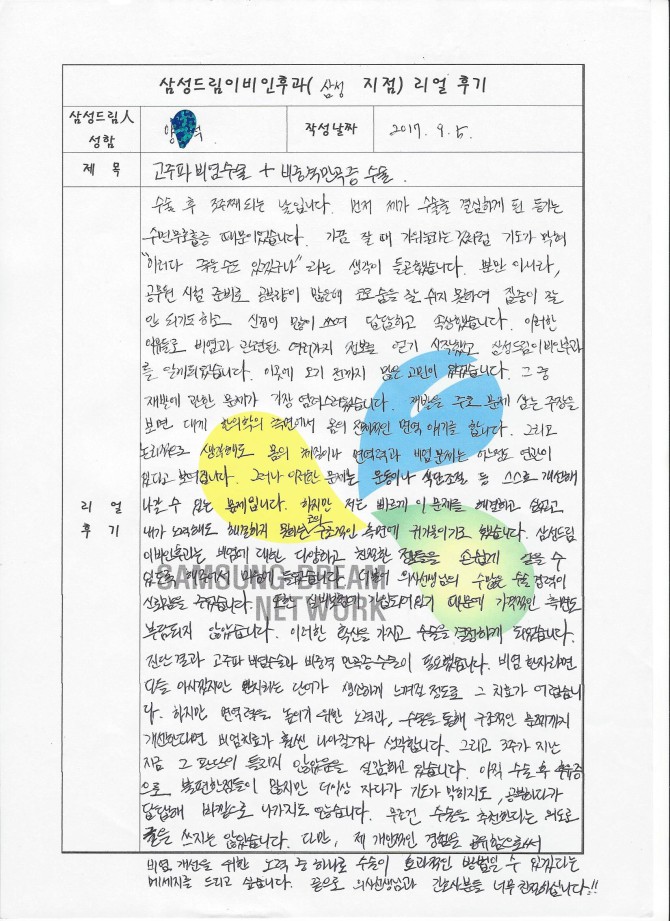 삼성드림이비인후과( 삼성 지점) 리얼 후기
삼성드림人 성함
양
작성날짜
2017. 9. 5.
제 목
고주파 비염수술 + 비중격만곡증 수술.
리 얼 후 기
수술 후 3주째 되는 날입니다. 먼저 제가 수술을 결심하게 된 동기는
수면무호흡증 때문이었습니다. 가끔 잘 때 가위눌리는 것처럼 기도가 막혀
"이러다 죽을수도 있겠구나" 라는 생각이 들곤했습니다. 뿐만 아니라,
공무원 시험 준비로 공부량이 많은데 코로 숨을 잘 쉬지 못하여 집중이 잘
안 되기도 하고 신경이 많이 쓰여 답답하고 속상했습니다. 이러한
이유들로 비염과 관련된 여러가지 정보를 얻기 시작했고 삼성드림이비인후과
를 알게되었습니다. 이곳에 오기 전까지 많은 고민이 있었습니다. 그 중
재발에 관한 문제가 가장 염려스러웠습니다. 재발을 주로 문제 삼는 주장을
보면 대개 한의학의 측면에서 몸의 전체적인 면역 얘기를 합니다. 그리고
논리적으로 생각해도 몸의 체질이나 면역력과 비염 문제는 아무래도 연관이
있다고 보여집니다. 그러나 이러한 문제는 운동이나 식단조절 등 스스로 개선해
나갈 수 있는 문제입니다. 하지만 저는 빠르게 이 문제를 해결하고 싶었고
내가 노력해도 해결하지 못하는 코의 구조적인 측면에 귀기울이기도 했습니다. 삼성드림
이비인후과는 비염에 대한 다양하고 친절한 정보들을 손쉽게 얻을 수
있도록 해주어서 마음에 들었습니다. 더불어 의사선생님의 수많은 수술 경력이
신뢰감을 주었습니다. 또한 실비보험이 가입되어있기 때문에 가격적인 측면도
부담되지 않았습니다. 이러한 확신을 가지고 수술을 결정하게 되었습니다.
진단결과 고주파 비염수술과 비중격 만곡증수술이 필요했습니다. 비염 환자라면
다들 아시겠지만 완치라는 단어가 생소하게 느껴질 정도로 그 치료가 어렵습니
다. 하지만 면역력을 높이기 위한 노력과, 수술을 통해 구조적인 문제까지
개선한다면 비염치료가 훨씬 나아질거라 생각합니다. 그리고 3주가 지난
지금 그 판단이 틀리지 않았음을 실감하고 있습니다. 아직 수술 후 후유증
으로 불편한점들이 많지만 더이상 자다가 기도가 막히지도, 공부하다가
답답해 바깥으로 나가지도 않습니다. 무조건 수술을 추천한다는 의도로
글을 쓰지는 않았습니다. 다만, 제 개인적인 경험을 공유함으로써
비염 개선을 위한 노력 중 하나로 수술이 효과적인 방법일 수 있겠다는
메세지를 드리고 싶습니다. 끝으로 의사선생님과 간호사분들 너무 친절하십니다!!
SAMSUNG DREAM
NETWORK